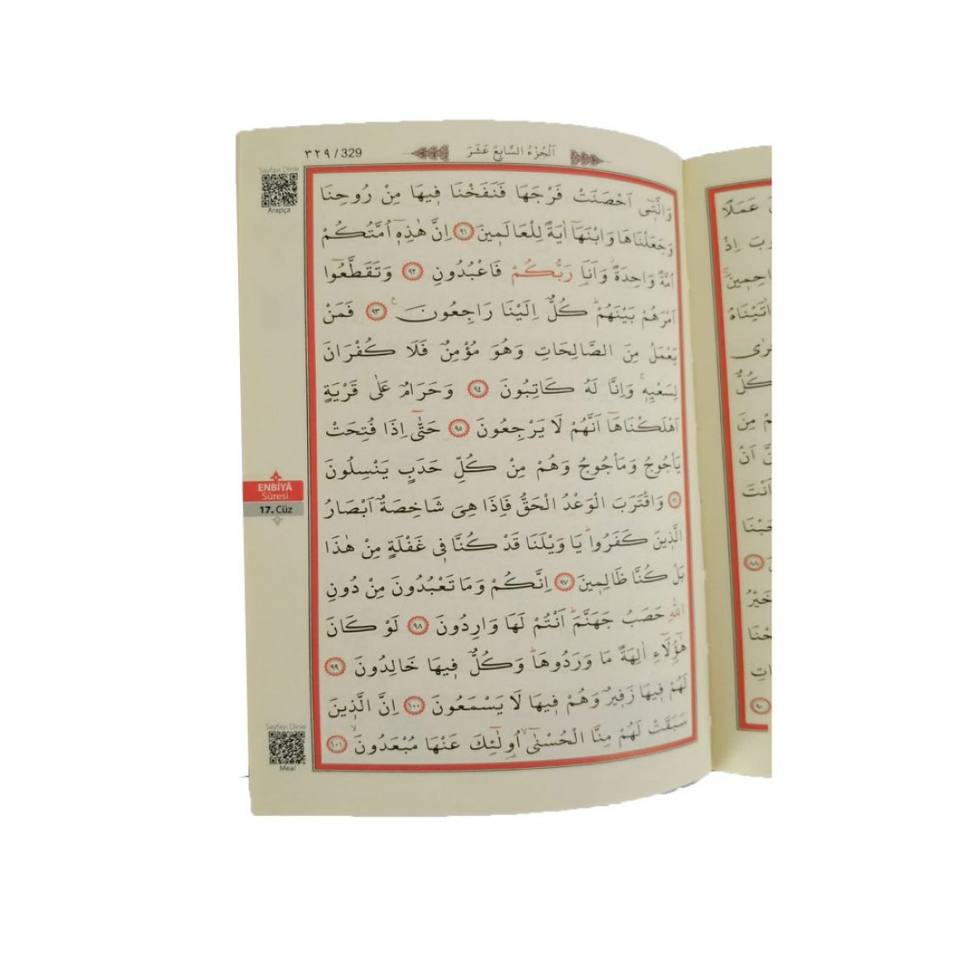 ٣٢٩ / 329
اَلْجُزْءُ السَّابِعَ عَشَرَ
Sayfayı Dinle
Arapça
وَالَّت۪ٓي اَحْصَنَتْ فَرْجَهَا فَنَفَخْنَا ف۪يهَا مِنْ رُوحِنَا
وَجَعَلْنَاهَا وَابْنَهَٓا اٰيَةً لِلْعَالَم۪ينَ ٩١ اِنَّ هٰذِه۪ٓ اُمَّتُكُمْ
اُمَّةً وَاحِدَةًۘ وَاَنَا۬ رَبُّكُمْ فَاعْبُدُونِ ٩٢ وَتَقَطَّعُٓوا
اَمْرَهُمْ بَيْنَهُمْۜ كُلٌّ اِلَيْنَا رَاجِعُونَ۟ ٩٣ فَمَنْ
يَعْمَلْ مِنَ الصَّالِحَاتِ وَهُوَ مُؤْمِنٌ فَلَا كُفْرَانَ
لِسَعْيِه۪ۚ وَاِنَّا لَهُ كَاتِبُونَ ٩٤ وَحَرَامٌ عَلٰى قَرْيَةٍ
اَهْلَكْنَاهَٓا اَنَّهُمْ لَا يَرْجِعُونَ ٩٥ حَتّٰٓى اِذَا فُتِحَتْ
يَأْجُوجُ وَمَأْجُوجُ وَهُمْ مِنْ كُلِّ حَدَبٍ يَنْسِلُونَ
٩٦ وَاقْتَرَبَ الْوَعْدُ الْحَقُّ فَاِذَا هِيَ شَاخِصَةٌ اَبْصَارُ
الَّذ۪ينَ كَفَرُواۜ يَا وَيْلَنَا قَدْ كُنَّا ف۪ي غَفْلَةٍ مِنْ هٰذَا
بَلْ كُنَّا ظَالِم۪ينَ ٩٧ اِنَّكُمْ وَمَا تَعْبُدُونَ مِنْ دُونِ
اللّٰهِ حَصَبُ جَهَنَّمَۜ اَنْتُمْ لَهَا وَارِدُونَ ٩٨ لَوْ كَانَ
هٰٓؤُ۬لَٓاءِ اٰلِهَةً مَا وَرَدُوهَاۜ وَكُلٌّ ف۪يهَا خَالِدُونَ ٩٩
لَهُمْ ف۪يهَا زَف۪يرٌ وَهُمْ ف۪يهَا لَا يَسْمَعُونَ ١٠٠ اِنَّ الَّذ۪ينَ
سَبَقَتْ لَهُمْ مِنَّا الْحُسْنٰٓىۙ اُو۬لٰٓئِكَ عَنْهَا مُبْعَدُونَۙ ١٠١
ENBİYÂ
Sûresi
17. Cüz
Sayfayı Dinle
Meal
عَمَلًا
اِذْ
اٰتَيْنَاهُ
كُلٌّ
مِنَ
اَنْ
اَنْتَ
خَيْرُ
٩٠